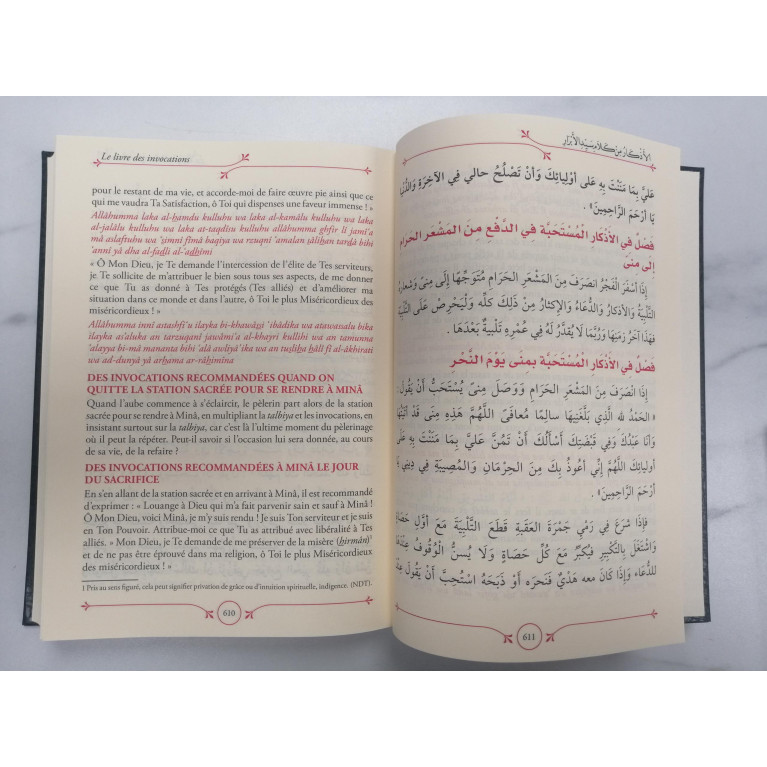 Le livre des invocations
pour le restant de ma vie, et accorde-moi de faire œuvre pie ainsi que ce
qui me vaudra Ta Satisfaction, ô Toi qui dispenses une faveur immense ! »
Allâhumma laka al-hamdu kulluhu wa laka al-kamâlu kulluhu wa laka
al-jalâlu kulluhu wa laka at-taqdîsu kulluhu allâhumma ghfir lî jamî'a
mâ aslaftuhu wa 'imnî fîmâ baqiya wa rzuqnî 'amalan sâlihan tardâ bihi
'annî yâ dha al-fadli al-'adhîmi
« Ô Mon Dieu, je Te demande l'intercession de l'élite de Tes serviteurs,
je Te sollicite de m'attribuer le bien sous tous ses aspects, de me donner
ce que Tu as donné à Tes protégés (Tes alliés) et d'améliorer ma
situation dans ce monde et dans l'autre, ô Toi le plus Miséricordieux des
miséricordieux ! »
Allâhumma innî astashfi'u ilayka bi-khawâssi 'ibâdika wa atawasalu bika
ilayka as'aluka an tarzuqanî jawâmi'a al-khayri kullihi wa an tamunna
'alayya bi-mâ mananta bihi 'alâ awliyâ'ika wa an tusliha hâlî fî al-âkhirati
wa ad-dunyâ yâ arhama ar-râhimîna
DES INVOCATIONS RECOMMANDÉES QUAND ON
QUITTE LA STATION SACRÉE POUR SE RENDRE À MINÂ
Quand l'aube commence à s'éclaircir, le pèlerin part alors de la station
sacrée pour se rendre à Minâ, en multipliant la talbiya et les invocations, en
insistant surtout sur la talbiya, car c'est là l'ultime moment du pèlerinage
où il peut la répéter. Peut-il savoir si l'occasion lui sera donnée, au cours
de sa vie, de la refaire ?
DES INVOCATIONS RECOMMANDÉES À MINÂ LE JOUR
DU SACRIFICE
En s'en allant de la station sacrée et en arrivant à Minâ, il est recommandé
d'exprimer : « Louange à Dieu qui m'a fait parvenir sain et sauf à Minâ !
Ô Mon Dieu, voici Minâ, je m'y suis rendu ! Je suis Ton serviteur et je suis
en Ton Pouvoir. Attribue-moi ce que Tu as attribué avec libéralité à Tes
alliés. » « Mon Dieu, je Te demande de me préserver de la misère (hirmân)¹
et de ne pas être éprouvé dans ma religion, ô Toi le plus Miséricordieux des
miséricordieux ! »
1 Pris au sens figuré, cela peut signifier privation de grâce ou d'intuition spirituelle, indigence. (NDT).
610
الأذكار من كلام سيد الأبرار
عَلَيَّ بِمَا مَنَنْتَ بِهِ عَلى أَوْلِيَائِكَ وَأَنْ تُصْلِحَ حالي فِي الآخِرَةِ وَالدُّنْيَا
يَا أَرْحَمَ الرَّاحِمِينَ» .
فَصْلٌ في الأَذكار الْمُسْتَحَبَّة في الدَّفْع مِنَ المَشْعر الحَرام
إلى منىً
إِذَا أَسْفَرَ الْفَجْرُ انْصَرَفَ مِنَ المَشْعَرِ الحَرَامِ مُتَوَجِّهًا إِلَى مِنىً وَشِعارُهُ
التَّلْبِيَةُ وَالأَذْكَارُ وَالدُّعَاءُ وَالإِكْثارُ مِنْ ذَلِكَ كُلِّهِ وَلْيَحْرِصْ عَلَى التَّلْبِيَةِ
فَهَذَا آخِرُ زَمَنِهَا وَرُبَّمَا لَا يُقَدَّرُ لَهُ فِي عُمْرِهِ تَلْبِيَةٌ بَعْدَهَا .
فَصْلٌ في الأَذكار المُسْتَحَبَّة بمنى يَوْمَ النَّحْر
إِذَا انْصَرَفَ مِنَ المَشْعَرِ الحَرَامِ وَوَصَلَ مِنىً يُسْتَحَبُّ أَنْ يَقُولَ
«الحَمْدُ لله الَّذِي بَلَّغَنِيهَا سالِما مُعافىً اللَّهُمَّ هَذِهِ مِنًى قَدْ أَتَيْتُهَا
وَأَنَا عَبْدُكَ وَفِي قَبْضَتِكَ أَسْأَلُكَ أَنْ تَمُنَّ عَلَيَّ بِمَا مَنَنْتَ بِهِ عَلَى
أَوْلِيائِكَ اللَّهُمَّ إِنِّي أَعُوذُ بِكَ مِنَ الْحِرْمَانِ وَالمُصِيبَةِ فِي دِينِي يَا
أَرْحَمَ الرَّاحِمِينَ» .
فَإِذَا شَرَعَ فِي رَمْيِ جَمْرَةِ العَقَبَةِ قَطَعَ التَّلْبِيَةَ مَعَ أَوَّلِ حَصَاةٍ
وَاشْتَغَلَ بِالتَّكْبِيرِ فَيُكَبِّرُ مَعَ كُلِّ حَصَاةٍ وَلَا يُسَنُّ الْوُقُوفُ عِنْدَهَا
لِلدُّعَاءِ وَإِذَا كَانَ معه هَدْيٌ فَنَحَرَه أَوْ ذَبَحَهُ اسْتُحِبَّ أَنْ يَقُولَ عِنْدَ
611